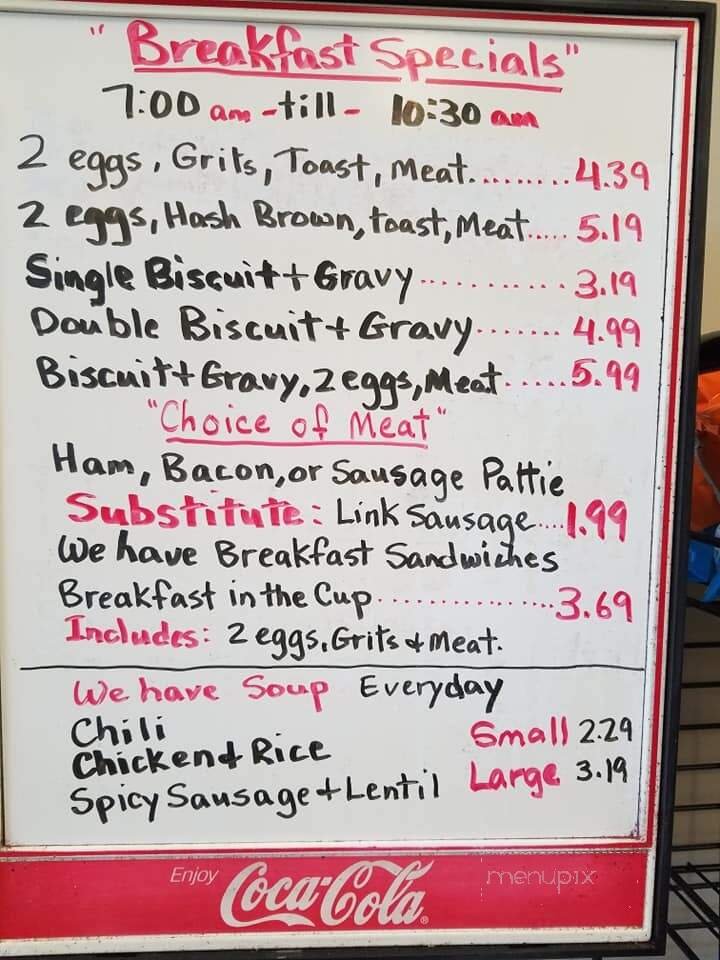 "Breakfast Specials"
7:00 am -till- 10:30 am
2 eggs, Grits, Toast, Meat.........4.39
2 eggs, Hash Brown, toast, Meat..... 5.19
Single Biscuit + Gravy............ 3.19
Double Biscuit + Gravy....... 4.99
Biscuit + Gravy, 2 eggs, Meat......5.99
"Choice of Meat"
Ham, Bacon, or Sausage Pattie
Substitute: Link Sausage....1.99
We have Breakfast Sandwiches
Breakfast in the Cup...............3.69
Includes: 2 eggs, Grits & Meat.
We have Soup Everyday
Chili
Chicken & Rice
Spicy Sausage + Lentil
Small 2.29
Large 3.19
Enjoy
Coca-Cola®
menupix